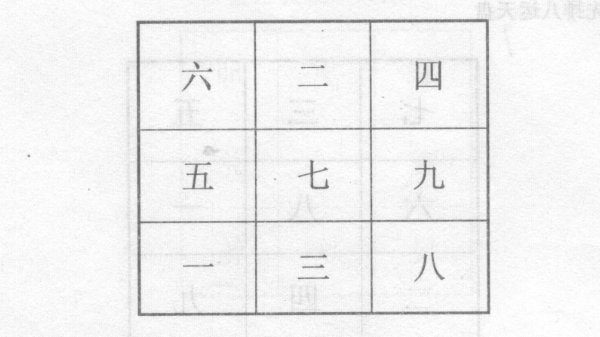 六 二 四
五 七 九
一 三 八